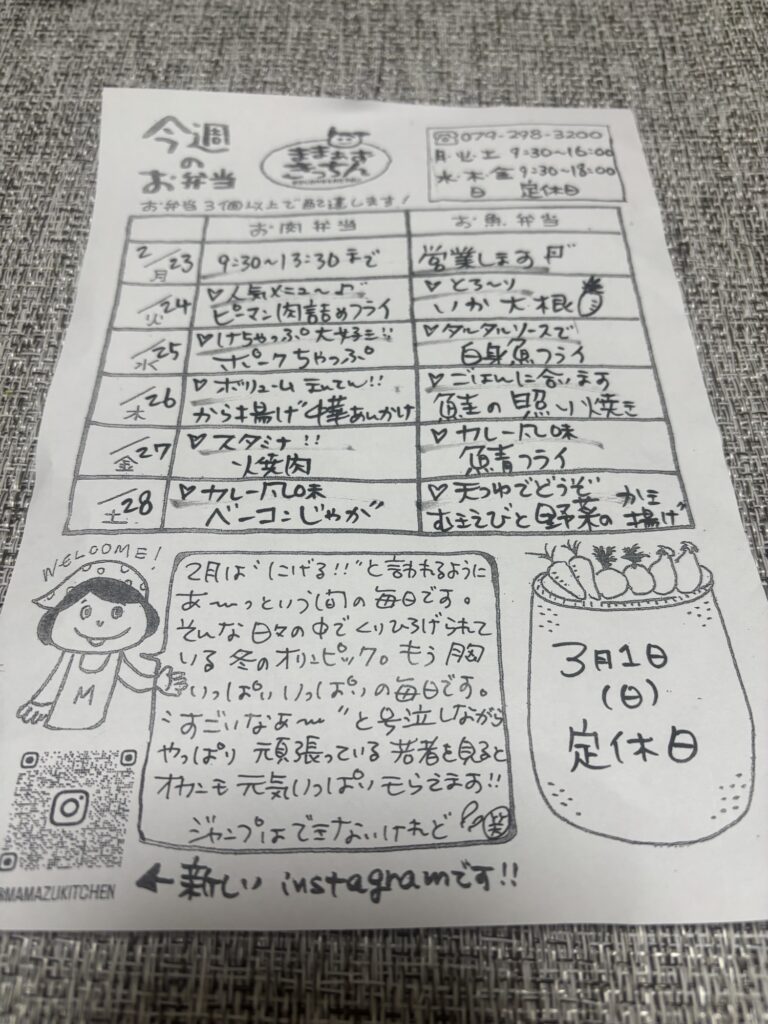 今週
の
お弁当
ままずきっちん
☎079-298-3200
月・火・土 9:30~16:00
水・木・金 9:30~18:00
日 定休日
お弁当3個以上で配達します!
お肉弁当 お魚弁当
2/23 月 9:30~13:30まで 営業します
24 火 ♡人気メニュ~♪ ピーマン肉詰めフライ ♡とろ~り いか大根
25 水 ♡けちゃっぷ大好き!! ポークちゃっぷ ♡タルタルソースで 白身魚フライ
26 木 ♡ボリューム まんてん!! から揚げ中華あんかけ ♡ごはんに合います 鮭の照り焼き
27 金 ♡スタミナ!! 焼肉 ♡カレー風味 鯖フライ
28 土 ♡カレー風味 ベーコンじゃが ♡天つゆでどうぞ むきえびと野菜のかき揚げ
WELCOME!
M
2月は"にげる!!"と言われるように
あ~っという間の毎日です。
そんな日々の中でくりひろげられて
いる冬のオリンピック。もう胸
いっぱいいっぱいの毎日です。
"すごいなぁ~"と号泣しながら
やっぱり頑張っている若者を見ると
オカンも元気いっぱいもらえます!!
ジャンプはできないけれど 笑
3月1日
(日)
定休日
@MAMAZUKITCHEN
←新しいinstagramです!!